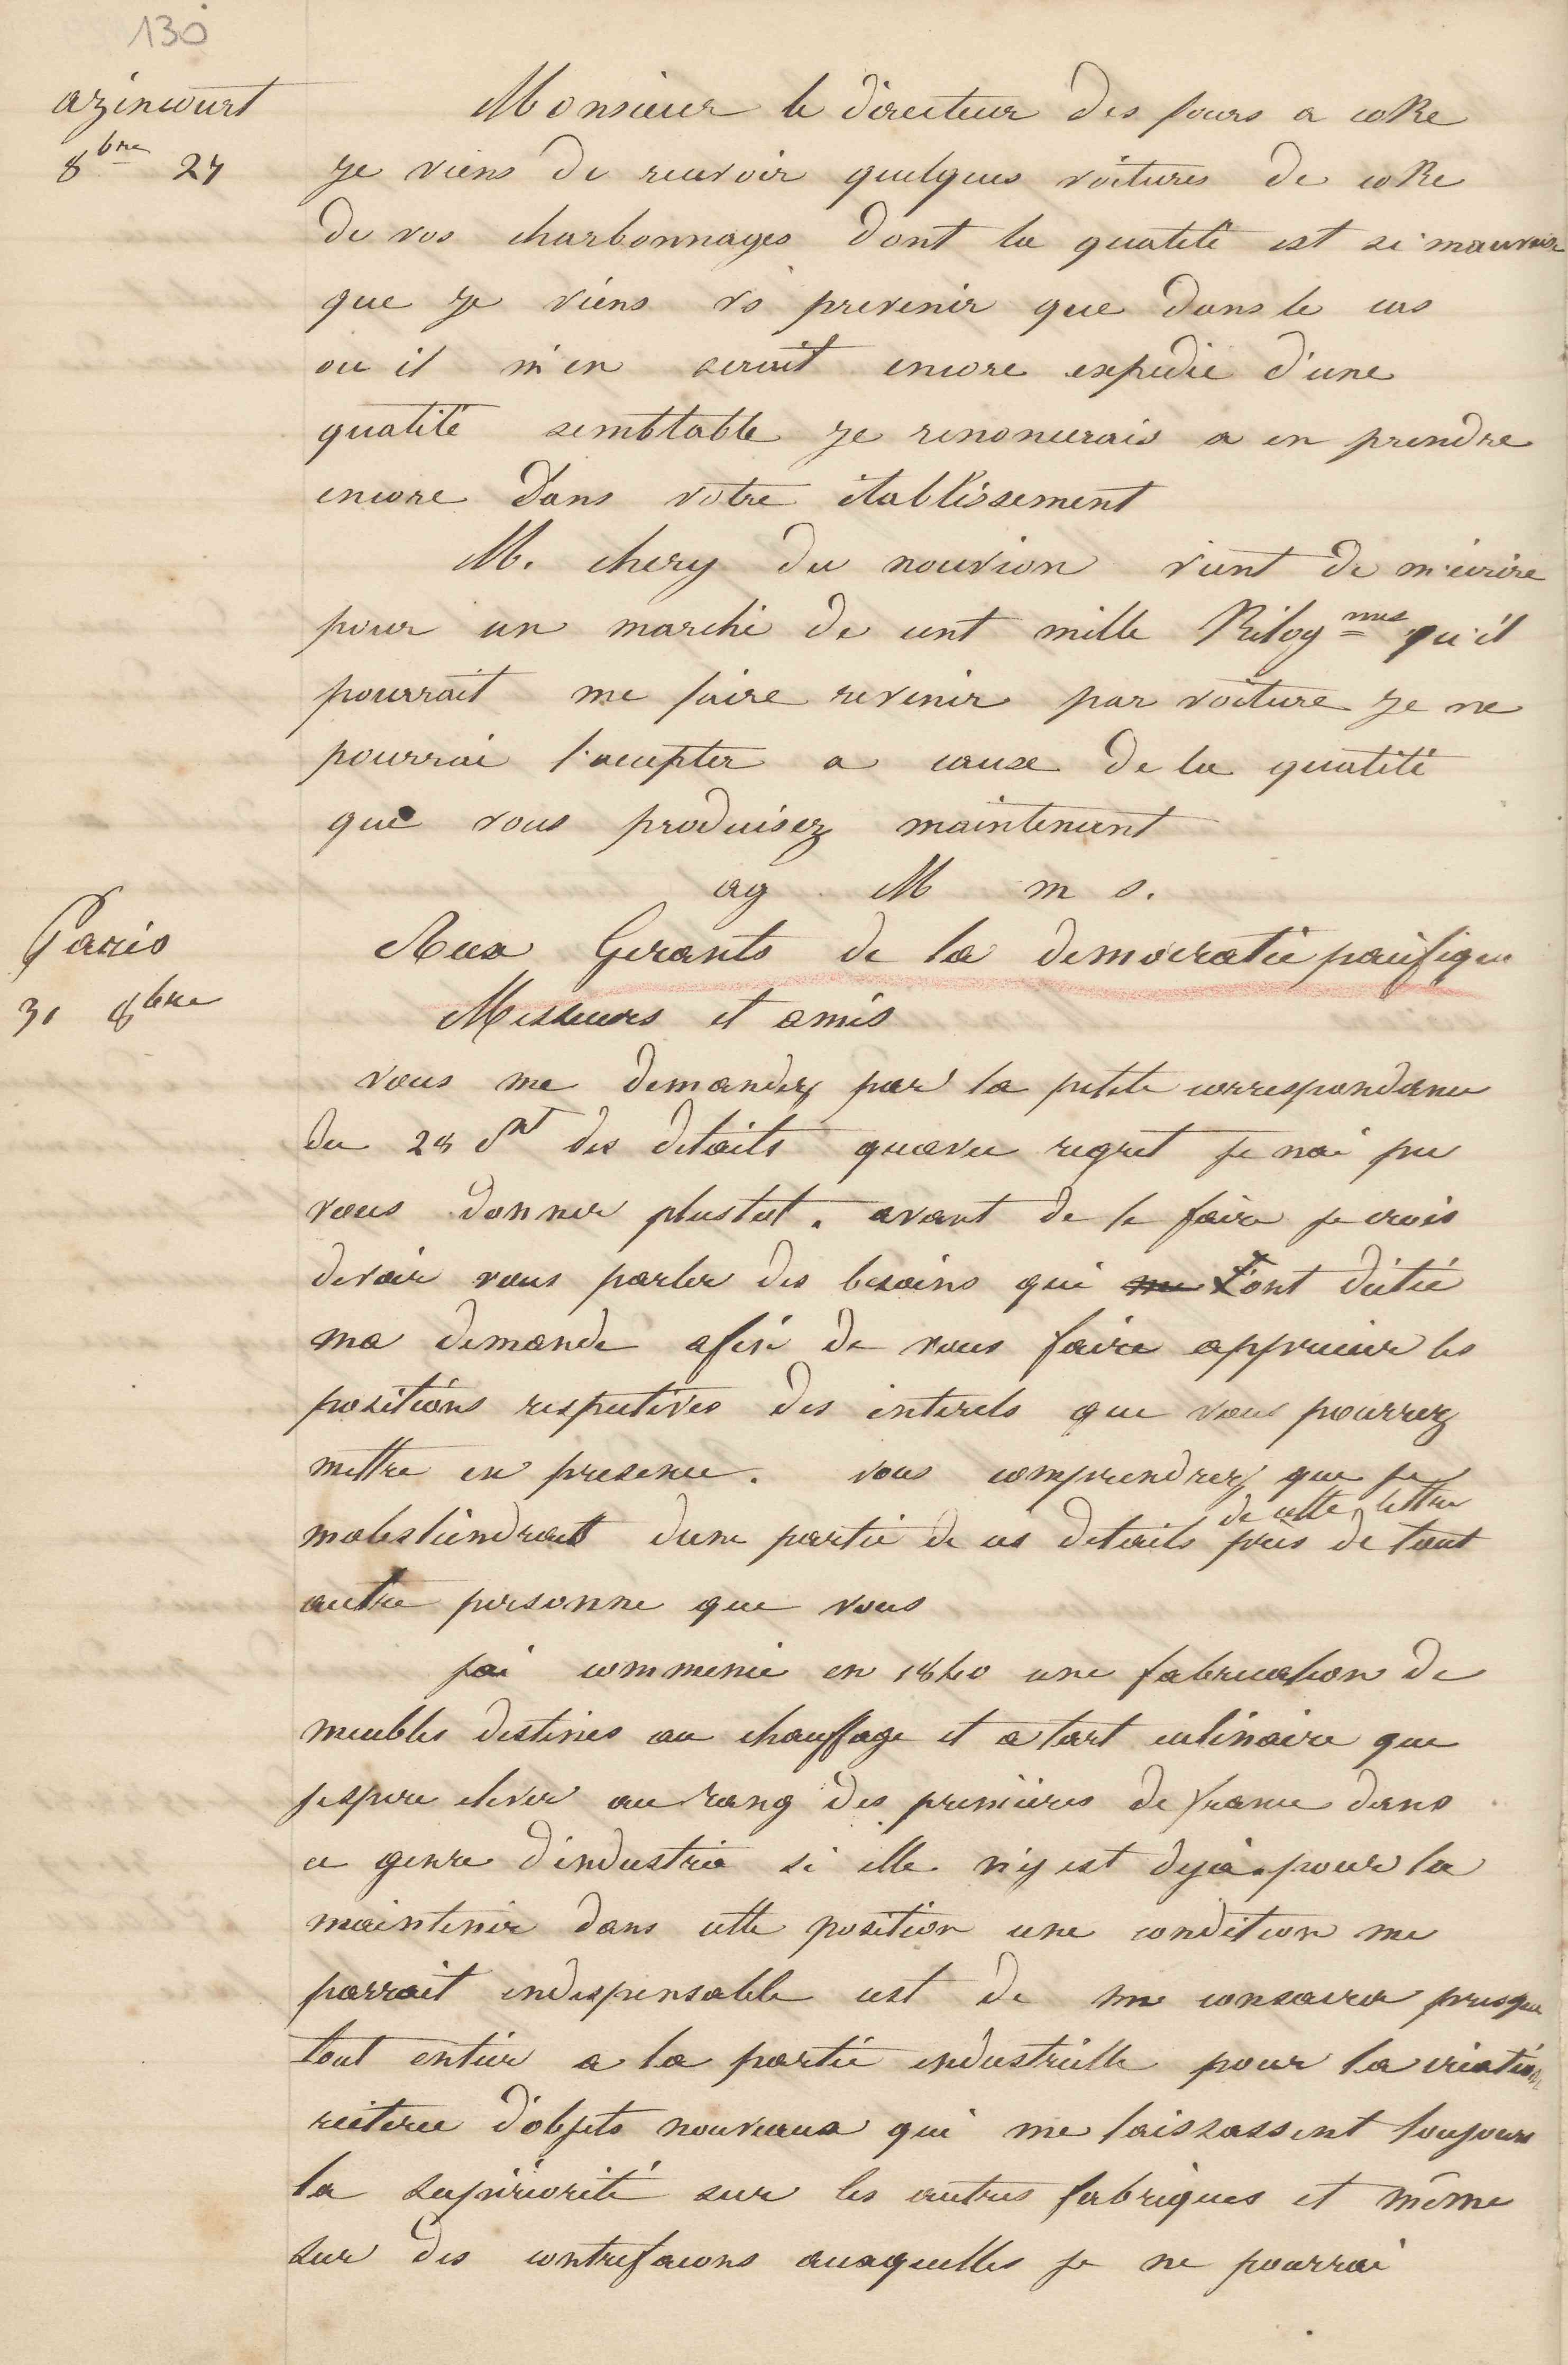 130
azincourt
8bre 27
Monsieur le directeur des fours a coke
je viens de recevoir quelques voitures de coke
de vos charbonnages dont la qualité est si mauvaise
que je viens vs prevenir que dans le cas
ou il m'en serait encore expedié d'une
qualité semblable je renoncerais a en prendre
encore dans votre établissement
M. chery du nouvion vient de m'écrire
pour un marché de cent mille Kilogmes qu'il
pourrait me faire revenir par voiture je ne
pourrai l'accepter a cause de la qualité
que vous produisez maintenant
ag M m s.
Paris
31 8bre
Aux Gerants de la democratie pacifique
Messieurs et amis
vous me demandez par la petite correspondance
du 28 ct des details quavec regret je nai pu
vous donner plustot. avant de le faire je crois
devoir vous parler des besoins qui l'ont dictée
ma demande afin de vous faire apprecier les
positions respectives des interets que vous pourrez
mettre en presence. vous comprendrez que je
mabstiendrait dune partie de ces details de cette lettre près de tout
autre personne que vous
jai commencé en 1840 une fabrication de
meubles destinés au chauffage et a lart culinaire que
jespere elever au rang des premieres de france dans
ce genre d'industrie si elle n'y est deja. pour la
maintenir dans cette position une condition me
parrait indispensable cest de me consacrer presque
tout entier a la partie industrielle pour la création
reiteree d'objets nouveaux qui me laissassent toujours
la supériorité sur les autres fabriques et même
sur des contrefacons auxquelles je ne pourrai